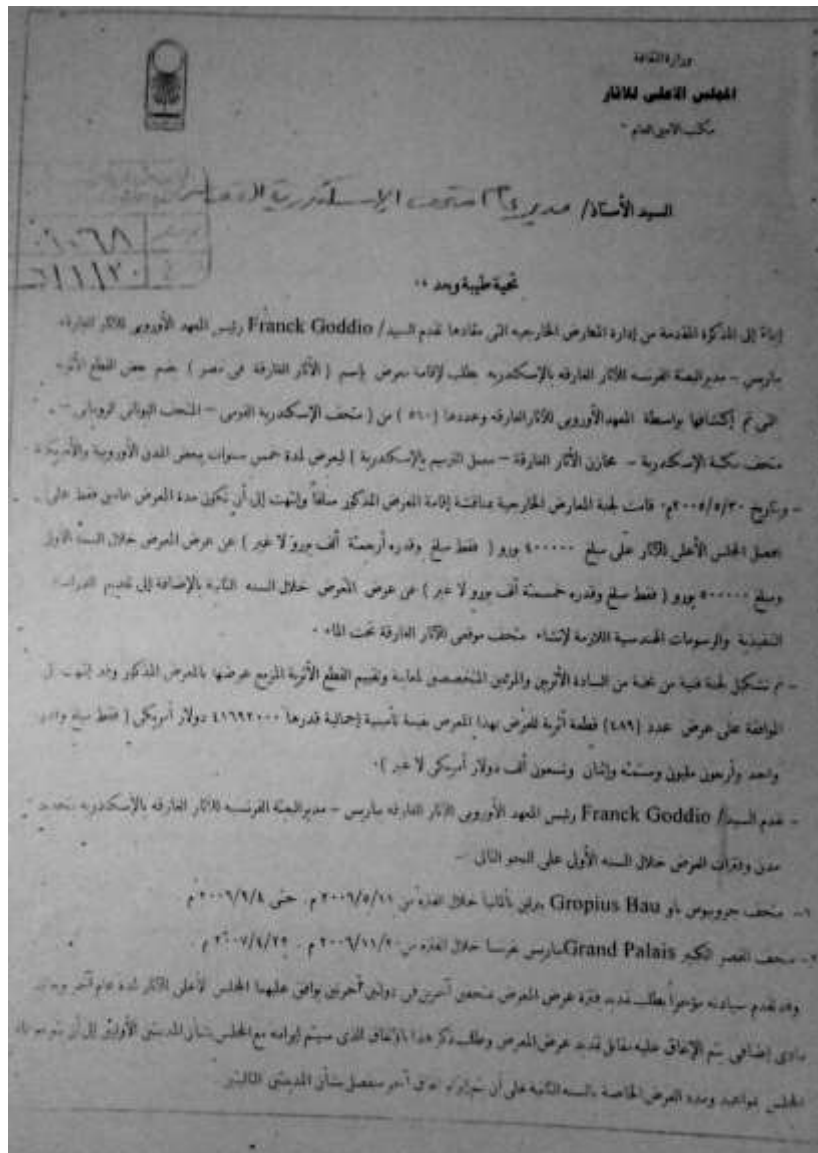 وزارة الثقافة
المجلس الأعلى للآثار
مكتب الأمين العام
السيد الأستاذ/ مدير عام متحف الإسكندرية
٦٨
تحية طيبة وبعد ،،
المذكرة المقدمة من إدارة المعارض الخارجيه التى مفادها تقدم السيد/ Franck Goddio رئيس المعهد الأوروبى للآثار الغارقة
بباريس – مدير البعثة الفرنسيه للآثار الغارقه بالإسكندريه بطلب لإقامة معرض بإسم ( الآثار الغارقة فى مصر ) يضم بعض القطع
التى تم إكتشافها بواسطة المعهد الأوروبى للآثار الغارقه وعددها (٥٦٠) من ( متحف الإسكندرية القومى – المتحف اليونانى الرومانى –
متحف مكتبة الإسكندرية – مخازن الآثار الغارقة – معمل الترميم بالإسكندرية ) ليعرض لمدة خمس سنوات ببعض المدن الأوروبية
– وبتاريخ ٢٠٠٥/٥/٣٠م قامت لجنة المعارض الخارجية بمناقشة إقامة المعرض المذكور سلفاً وإنتهت إلى أن تكون مدة المعرض عامين فقط على
يحصل المجلس الأعلى للآثار على مبلغ ٤٠٠٠٠٠ يورو ( فقط مبلغ وقدره أربعمئة ألف يورو لا غير ) عن عرض المعرض خلال السنة الأولى
ومبلغ ٥٠٠٠٠٠ يورو ( فقط مبلغ وقدره خمسمئة ألف يورو لا غير ) عن عرض المعرض خلال السنه الثانية بالإضافة إلى تقديم الدراسات
التنفيذية والرسومات الهندسية اللازمة لإنشاء متحف موقعى للآثار الغارقة تحت الماء .
– تم تشكيل لجنة فنية من نخبة من السادة الأثريين والمرممين المتخصصين لمعاينة وتقييم القطع الأثرية المزمع عرضها بالمعرض المذكور وقد إنتهت
الموافقة على عرض عدد (٤٨٩) قطعة أثرية للعرض بهذا المعرض بقيمة تأمينية إجمالية قدرها ٤١٦٩٢٠٠٠ دولار أمريكى ( فقط مبلغ وقدره
واحد وأربعون مليون وستمئة وإثنان وتسعون ألف دولار أمريكى لا غير ) .
– تقدم السيد/ Franck Goddio رئيس المعهد الأوروبى للآثار الغارقه بباريس – مدير البعثة الفرنسيه للآثار الغارقه بالإسكندريه بتحديد
مدن وفترات العرض خلال السنه الأولى على النحو التالى :–
١– متحف جروبيوس باو Gropius Bau ببرلين بألمانيا خلال الفترة من ٢٠٠٦/٥/١١ م. حتى ٢٠٠٦/٩/٤ م
٢– متحف القصر الكبير Grand Palais بباريس بفرنسا خلال الفترة من ٢٠٠٦/١١/٢٠ م . ٢٠٠٧/٤/٢٢ م .
وقد تقدم سيادته مؤخراً بطلب تمديد فترة عرض المعرض بمتحفين آخرين فى دولتين آخرتين يوافق عليهما المجلس الأعلى للآثار لمدة عام آخر
مادى إضافى يتم الإتفاق عليه مقابل تمديد عرض المعرض وطلب ذكر هذا بالإتفاق الذى سيتم إبرامه مع المجلس بشأن المدينتين الأوليتين إلى أن يتم
المجلس بمواعيد ومدة العرض الخاصة بالسنه الثانية على أن يتم إبرام إتفاق آخر منفصل بشأن المدينتين التاليتين